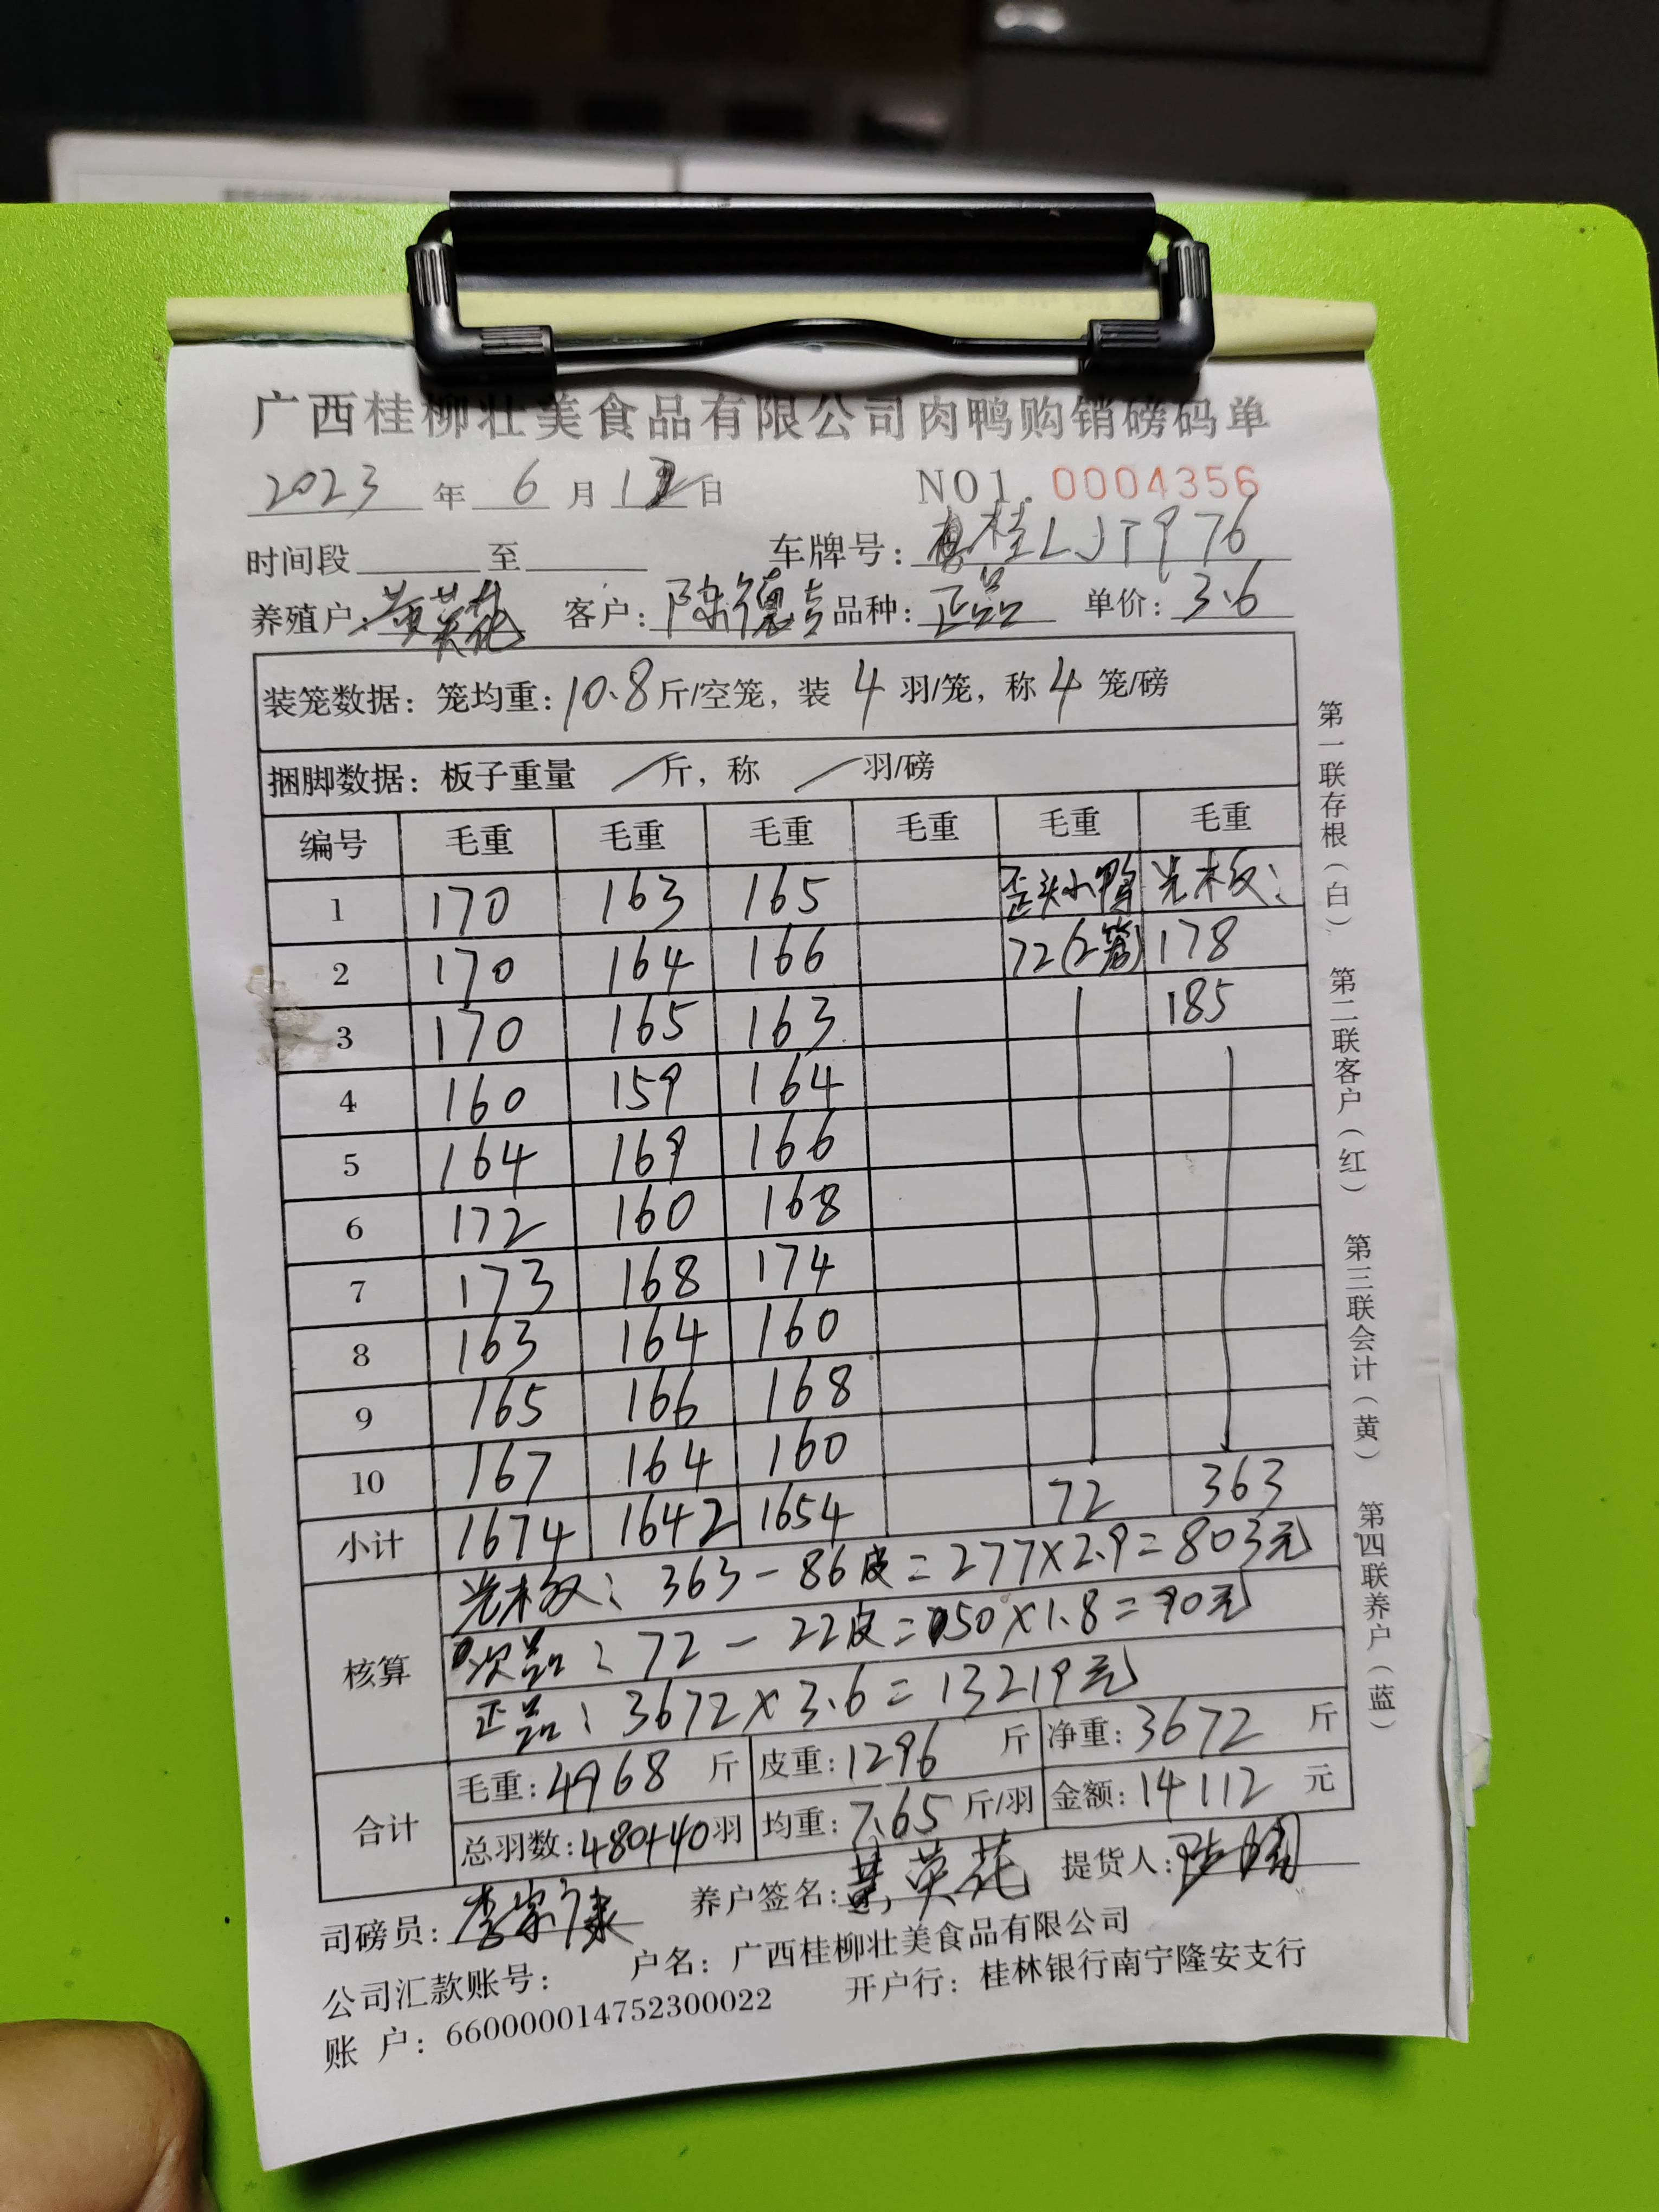 广西桂柳壮美食品有限公司肉鸭购销磅码单
2023 年 6 月 12 日 NO1. 0004356
时间段 至 车牌号: 桂LJT976
养殖户: 黄英花 客户: 陈德吉 品种: 正品 单价: 3.6
装笼数据: 笼均重: 10.8 斤/空笼, 装 4 羽/笼, 称 4 笼/磅
捆脚数据: 板子重量 / 斤, 称 / 羽/磅
编号 毛重 毛重 毛重 毛重 毛重 毛重
1 170 163 165 歪头小鸭 光木板:
2 170 164 166 72(2笼) 178
3 170 165 163 185
4 160 159 164
5 164 169 166
6 172 160 168
7 173 168 174
8 163 164 160
9 165 166 168
10 167 164 160
小计 1674 1642 1654 72 363
核算
光木板: 363-86皮=277×2.9=803元
次品: 72-22皮=50×1.8=90元
正品: 3672×3.6=13219元
合计
毛重: 4968 斤 皮重: 1296 斤 净重: 3672 斤
总羽数: 480+40 羽 均重: 7.65 斤/羽 金额: 14112 元
司磅员: 李家康 养户签名: 黄英花 提货人:
公司汇款账号: 户名: 广西桂柳壮美食品有限公司
账 户: 660000014752300022 开户行: 桂林银行南宁隆安支行
第一联存根(白) 第二联客户(红) 第三联会计(黄) 第四联养户(蓝)